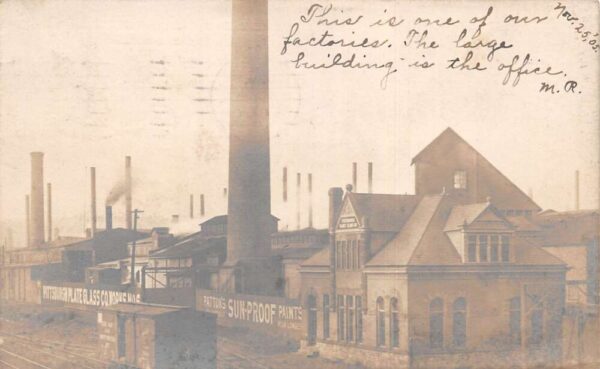 This is one of our
factories. The large
building is the office.
M.R.
Nov. 25, '05.
PITTSBURGH PLATE GLASS CO. WORKS No.
PATTON'S SUN-PROOF PAINTS